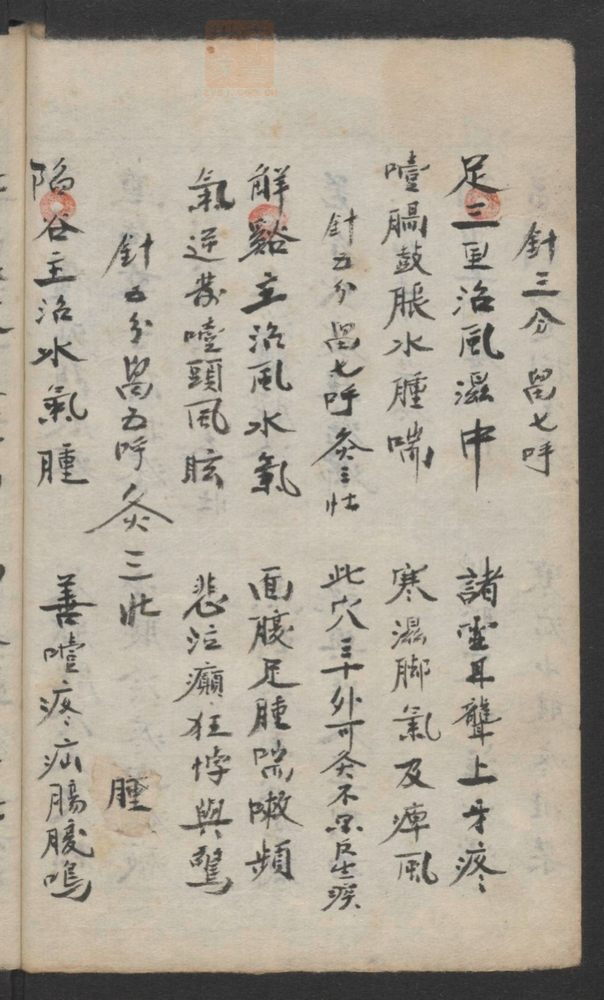 針三分畱七呼
足三里治風濕中 諸虚耳聾上牙疼
噎膈鼓脹水腫喘 寒濕脚氣及痺風
針五分畱七呼灸三壯 此穴三十外可灸不尔反生疾
解谿主治風水氣 面腹足腫喘嗽頻
氣逆發噎頭風眩 悲泣癲狂悸與驚
針五分畱五呼灸三壯 腫
陰谷主治水氣腫 善噎疼疝腸腹鳴